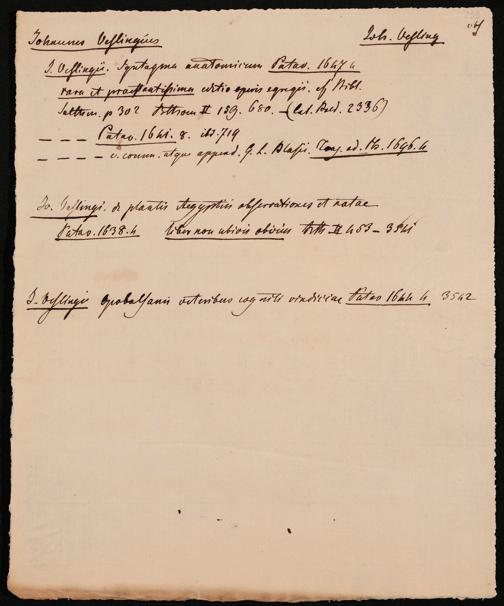 Johannes Veslingius Joh. Vesling
J. Veslingii. Syntagma anatomicum Patav. 1647 4
rara et praestantissima editio operis egregii. cf Bibl.
p 302 II 159. 680. – (Cat. 2336)
– – – Patav. 1641. 8. ibid. 719
– – – c. comm. atque append. G. L. Blasii. ed. 1696. 4
Jo. Veslingi. de plantis Aegyptiis observationes et notae
Patav. 1638. 4 liber non ubivis obvius II 453 – 3541
J. Veslingii opobalsami veteribus cogniti vindiciae Patav 1644 4 3542